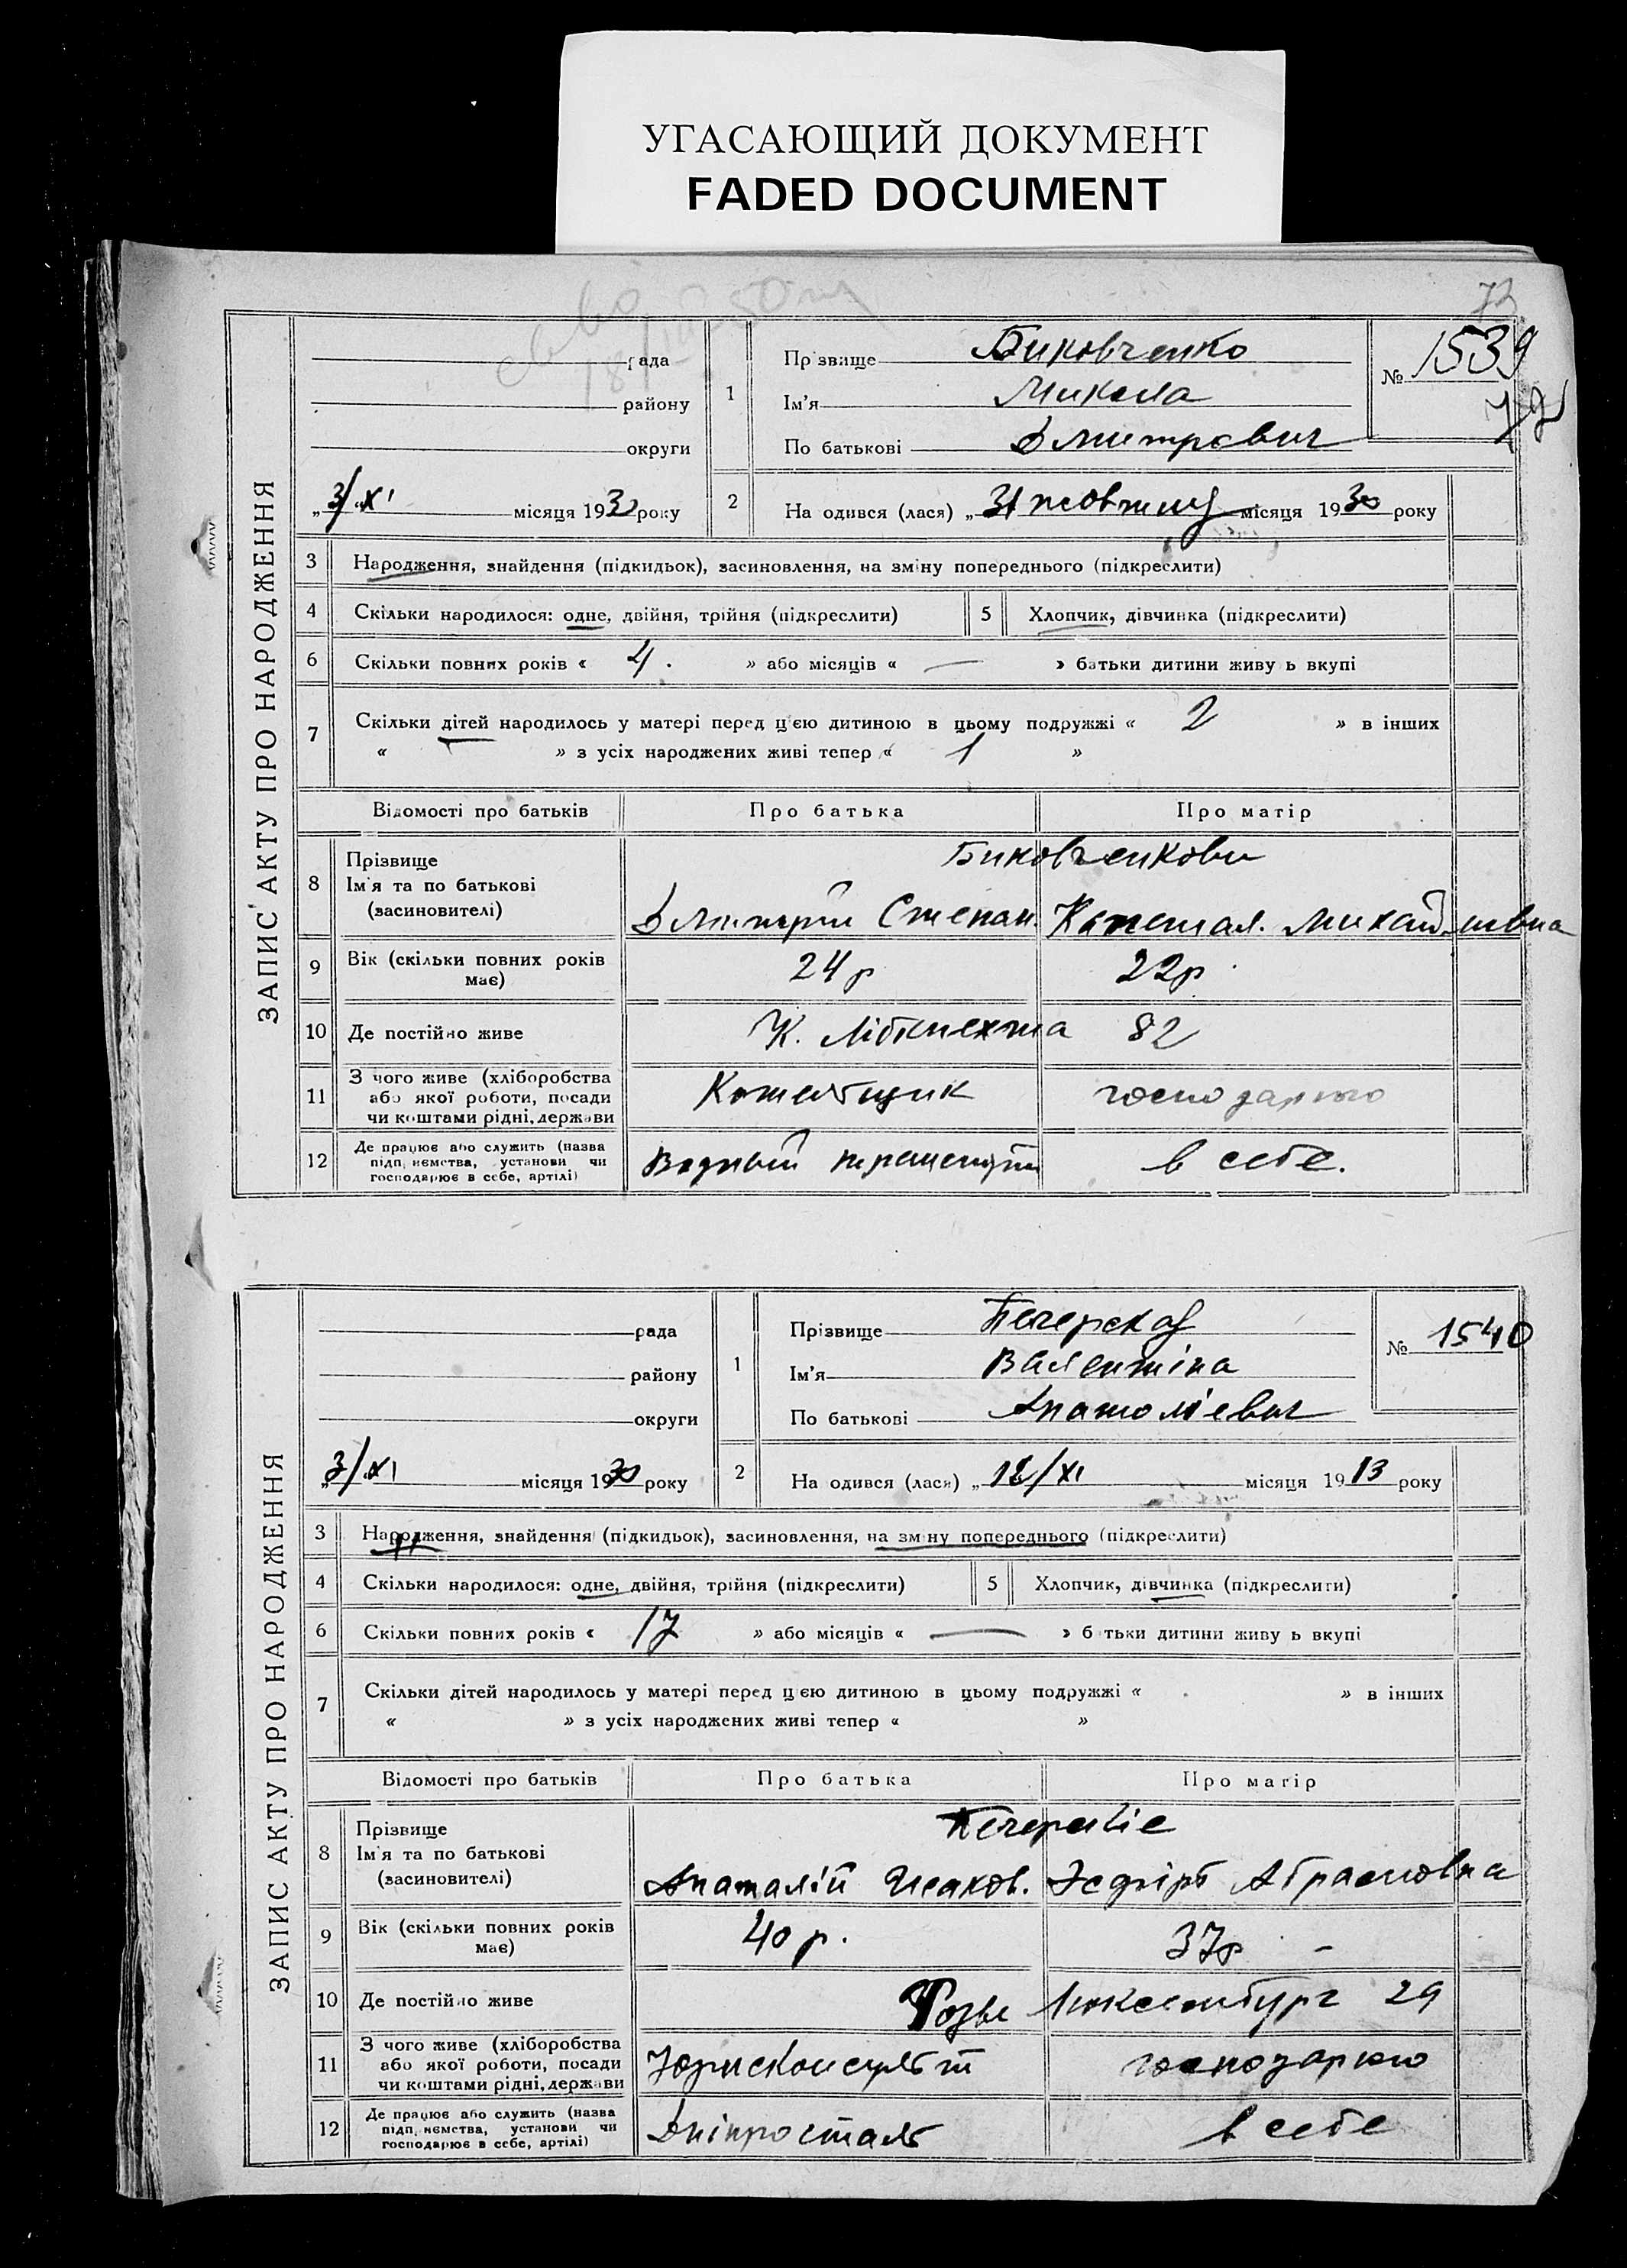 УГАСАЮЩИЙ ДОКУМЕНТ
FADED DOCUMENT
ЗАПИС АКТУ ПРО НАРОДЖЕННЯ
рада
району
округи
3/XI місяця 1930 року
1 Прізвище Биковченко
Ім'я Микола
По батькові Дмитрович
№ 1539
72
2 На одився (лася) „31 жовтня місяця 1930 року
3 Народження, знайдення (підкидьок), засиновлення, на зміну попереднього (підкреслити)
4 Скільки народилося: одне, двійня, трійня (підкреслити) 5 Хлопчик, дівчинка (підкреслити)
6 Скільки повних років « 4. » або місяців « — » батьки дитини живу ь вкупі
7 Скільки дітей народилось у матері перед цією дитиною в цьому подружжі « 2 » в інших
« » з усіх народжених живі тепер « 1 »
Відомості про батьків Про батька Про матір
8 Прізвище Ім'я та по батькові (засиновителі) Биковченкови
Дмитрій Степан. Михайловна
9 Вік (скільки повних років має) 24 р 22р.
10 Де постійно живе К. Лібкнехта 82
11 З чого живе (хліборобства або якої роботи, посади чи коштами рідні, держави господаркою
12 Де працює або служить (назва підприємства, установи чи господарює в себе, артілі) Водный в себе.
ЗАПИС АКТУ ПРО НАРОДЖЕННЯ
рада
району
округи
3/XI місяця 1930 року
1 Прізвище Печерская
Ім'я Валентіна
По батькові Анатолієвич
№ 1540
2 На одився (лася) „12/XI місяця 1913 року
3 Народження, знайдення (підкидьок), засиновлення, на зміну попереднього (підкреслити)
4 Скільки народилося: одне, двійня, трійня (підкреслити) 5 Хлопчик, дівчинка (підкреслити)
6 Скільки повних років « 17 » або місяців « — » б тьки дитини живу ь вкупі
7 Скільки дітей народилось у матері перед цією дитиною в цьому подружжі « » в інших
« » з усіх народжених живі тепер « »
Відомості про батьків Про батька Про матір
8 Прізвище Ім'я та по батькові (засиновителі) Печерскіе
Анатолій Исаков. Эсфірь Абрамовна
9 Вік (скільки повних років має) 40 р. 37р –
10 Де постійно живе Розы Люксембург 29
11 З чого живе (хліборобства або якої роботи, посади чи коштами рідні, держави Юрисконсульт господаркою
12 Де працює або служить (назва підприємства, установи чи господарює в себе, артілі) Дніпросталь в себе